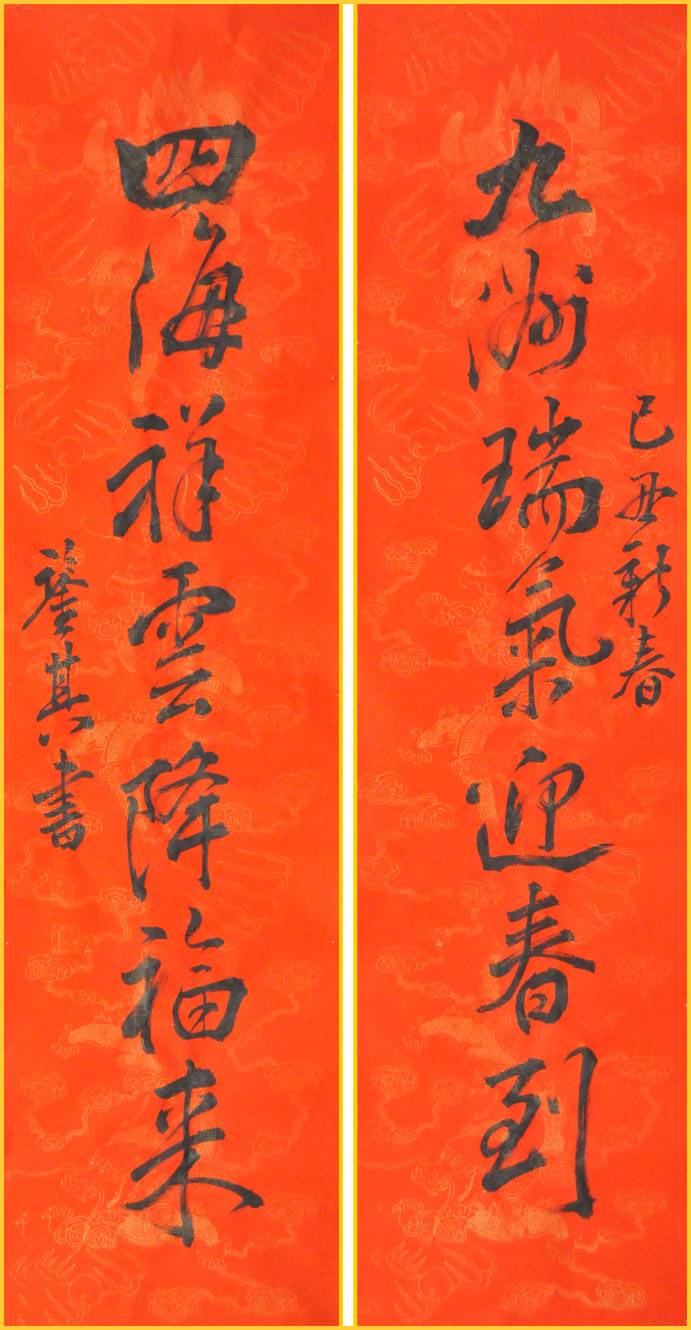 己丑新春
九洲瑞氣迎春到
四海祥雲降福来
其書